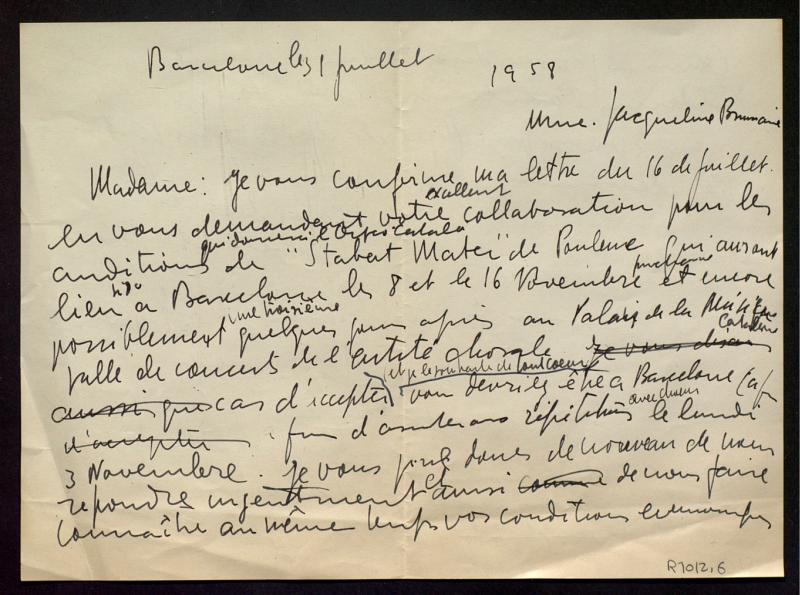 Barcelone le 31 juillet 1958
Mme. Jacqueline Brumaire
Madame: Je vous confirme ma lettre du 16 de juillet.
excellent
en vous demandant votre collaboration pour les
qui donnera l'Orfeó Català
auditions de "Stabat Mater" de Poulenc qui auront
prochaine
lieu à Barcelone les 8 et le 16 Novembre et encore
une troisième
possiblement quelques jours après au Palais de la Musique
Catalane
salle de concerts de l'entité chorale. Je vous disais
et je le souhaite de tout coeur
aussi que cas d'accepter vous devriez être à Barcelone (a fin
avec choeur
d'accepter fin d'assurer répétitions le lundi
3 Novembre. Je vous prie donc de nouveau de nous
et
répondre urgentment aussi comme de nous faire
connaître au même temps vos conditions économiques
R7012,6